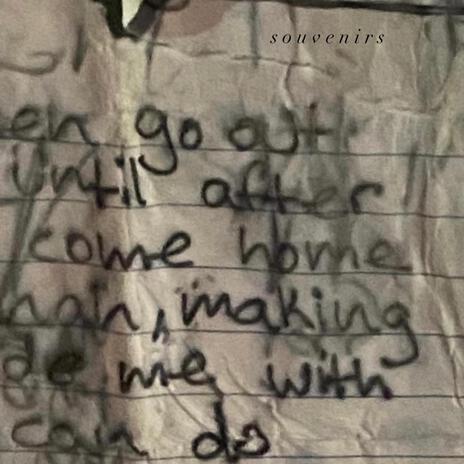 souvenirs
en go out
until after
come home
hain, making
de me with
can do